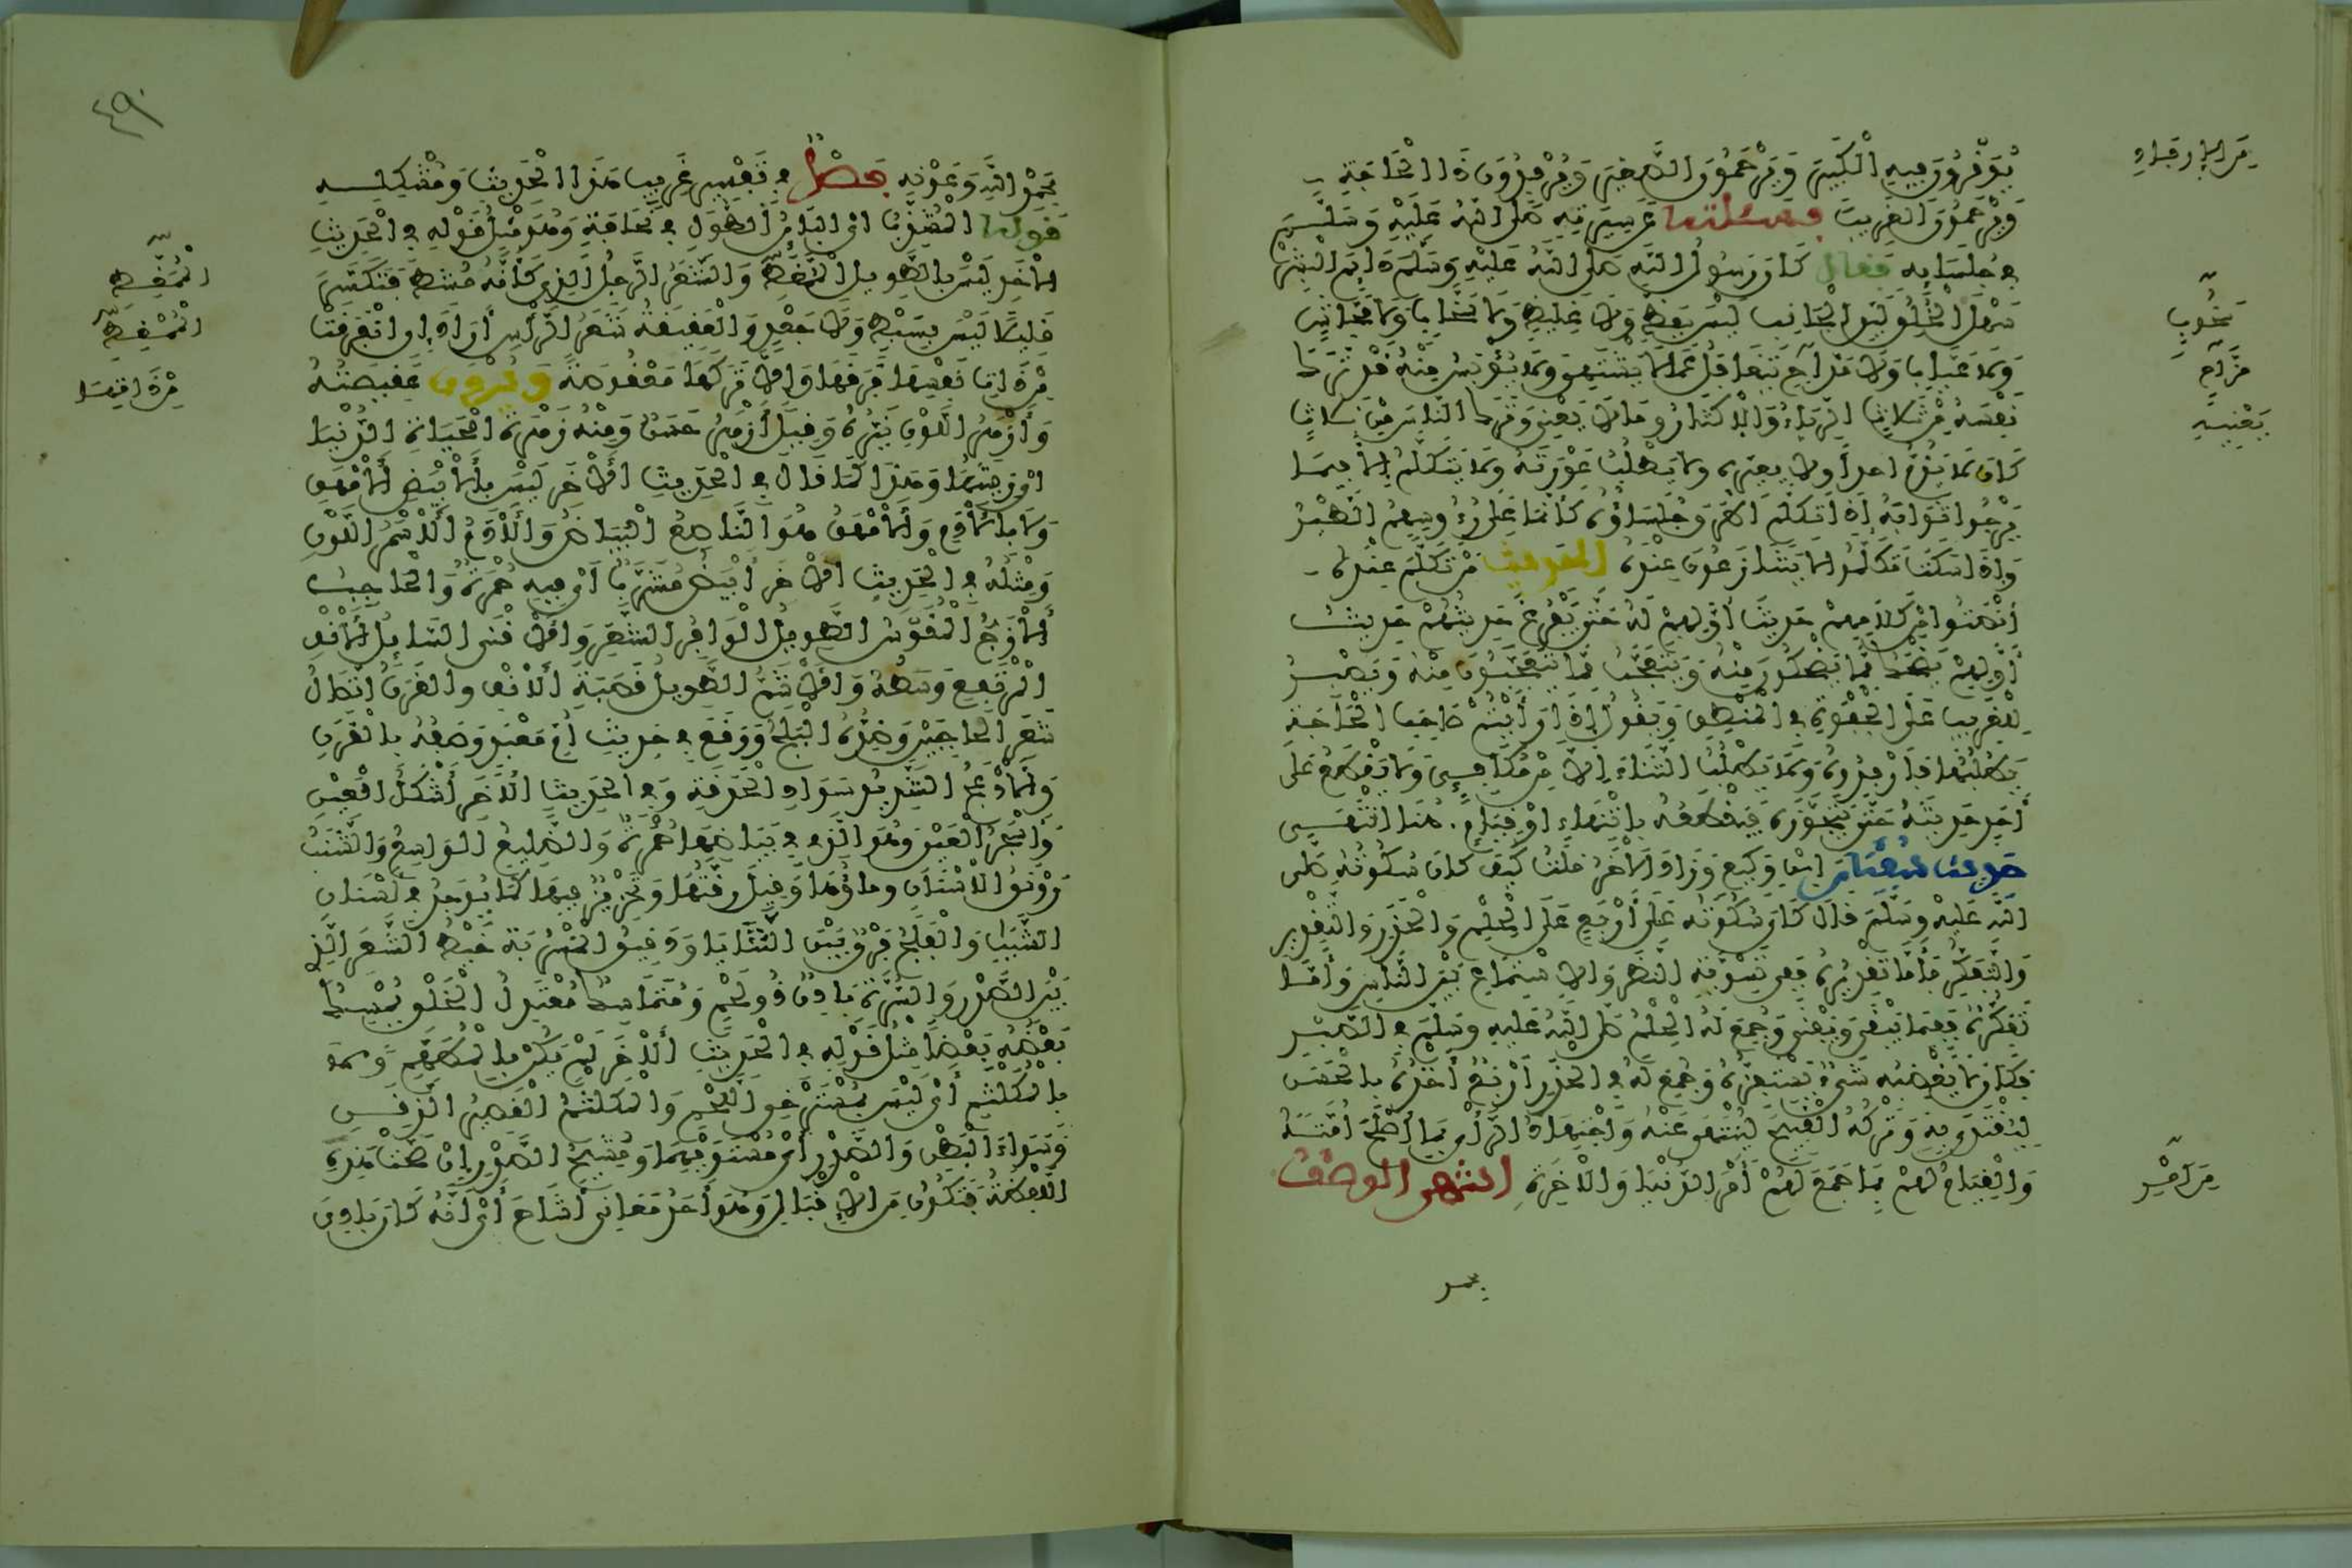 يُوَقِّرُونَ فِيهِ الْكَبِيرَ وَيَرْحَمُونَ الصَّغِيرَ وَيُرْفِدُونَ ذَا الْحَاجَةِ
وَيَرْحَمُونَ الْغَرِيبَ فَسَأَلْتُهُ عَنْ سِيرَتِهِ صَلَّى اللهُ عَلَيْهِ وَسَلَّمَ
فِي جُلَسَائِهِ فَقَالَ كَانَ رَسُولُ اللهِ صَلَّى اللهُ عَلَيْهِ وَسَلَّمَ دَائِمَ الْبِشْرِ
سَهْلَ الْخُلُقِ لَيِّنَ الْجَانِبِ لَيْسَ بِفَظٍّ وَلَا غَلِيظٍ وَلَا سَخَّابٍ وَلَا فَحَّاشٍ
وَلَا عَيَّابٍ وَلَا مَدَّاحٍ يَتَغَافَلُ عَمَّا لَا يَشْتَهِي وَلَا يُؤْيَسُ مِنْهُ قَدْ تَرَكَ
نَفْسَهُ مِنْ ثَلَاثٍ الرِّيَاءِ وَالْإِكْثَارِ وَمَا لَا يَعْنِيهِ وَتَرَكَ النَّاسَ مِنْ ثَلَاثٍ
كَانَ لَا يَذُمُّ أَحَدًا وَلَا يُعَيِّرُهُ وَلَا يَطْلُبُ عَوْرَتَهُ وَلَا يَتَكَلَّمُ إِلَّا فِيمَا
يَرْجُو ثَوَابَهُ إِذَا تَكَلَّمَ أَطْرَقَ جُلَسَاؤُهُ كَأَنَّمَا عَلَى رُءُوسِهِمُ الطَّيْرُ
وَإِذَا سَكَتَ تَكَلَّمُوا لَا يَتَنَازَعُونَ عِنْدَهُ الْحَدِيثَ مَنْ تَكَلَّمَ عِنْدَهُ
أَنْصَتُوا لَهُ حَتَّى يَفْرُغَ حَدِيثُهُمْ حَدِيثُ
أَوَّلِهِمْ يَضْحَكُ مِمَّا يَضْحَكُونَ مِنْهُ وَيَتَعَجَّبُ مِمَّا يَتَعَجَّبُونَ مِنْهُ وَيَصْبِرُ
لِلْغَرِيبِ عَلَى الْجَفْوَةِ فِي الْمَنْطِقِ وَيَقُولُ إِذَا رَأَيْتُمْ صَاحِبَ الْحَاجَةِ
يَطْلُبُهَا فَأَرْفِدُوهُ وَلَا يَطْلُبُ الثَّنَاءَ إِلَّا مِنْ مُكَافِئٍ وَلَا يَقْطَعُ عَلَى
أَحَدٍ حَدِيثَهُ حَتَّى يَتَجَوَّزَهُ فَيَقْطَعَهُ بِانْتِهَاءٍ أَوْ قِيَامٍ. هُنَا انْتَهَى
حَدِيثُ سُفْيَانَ ابْنِ وَكِيعٍ وَزَادَ الْآخَرُ قُلْتُ كَيْفَ كَانَ سُكُوتُهُ صَلَّى
اللهُ عَلَيْهِ وَسَلَّمَ قَالَ كَانَ سُكُوتُهُ عَلَى أَرْبَعٍ عَلَى الْحِلْمِ وَالْحَذَرِ وَالتَّقْدِيرِ
وَالتَّفَكُّرِ فَأَمَّا تَقْدِيرُهُ فَفِي تَسْوِيَةِ النَّظَرِ وَالِاسْتِمَاعِ بَيْنَ النَّاسِ وَأَمَّا
تَفَكُّرُهُ فَفِيمَا يَبْقَى وَيَفْنَى وَجُمِعَ لَهُ الْحِلْمُ صَلَّى اللهُ عَلَيْهِ وَسَلَّمَ فِي الصَّبْرِ
فَكَانَ لَا يُغْضِبُهُ شَيْءٌ يَسْتَفِزُّهُ وَجُمِعَ لَهُ فِي الْحَذَرِ أَرْبَعٌ أَخْذُهُ بِالْحَسَنِ
لِيُقْتَدَى بِهِ وَتَرْكُهُ الْقَبِيحَ لِيُنْتَهَى عَنْهُ وَاجْتِهَادُ الرَّأْيِ بِمَا أَصْلَحَ أُمَّتَهُ
وَالْقِيَامُ لَهُمْ بِمَا جَمَعَ لَهُمْ أَمْرَ الدُّنْيَا وَالْآخِرَةِ انتهى الوصف
بحمد
مِنَ الْإِرفَادِ
سَخُوبٍ
مَزَّاحٍ
يَعْنِيهِ
مِنْ أَمْرِ
٤٩
بِحَمْدِ اللهِ وَعَوْنِهِ فَصْلٌ فِي تَفْسِيرِ غَرِيبِ هَذَا الْحَدِيثِ وَمُشْكِلِهِ
قوله الْمُشَذَّبُ أَيِ الْبَائِنُ الطُّولِ فِي نَحَافَةٍ وَهُوَ مِثْلُ قَوْلِهِ فِي الْحَدِيثِ
الْآخَرِ لَيْسَ بِالطَّوِيلِ الْمُمَّغِطِ وَالشَّعَرُ الرَّجِلُ الَّذِي كَأَنَّهُ مُشِطَ فَتَكَسَّرَ
قَلِيلًا لَيْسَ بِسَبْطٍ وَلَا جَعْدٍ وَالْعَقِيقَةُ شَعَرُ الرَّأْسِ أَرَادَ إِنِ انْفَرَقَتْ
مِنْ ذَاتِ نَفْسِهَا فَرَقَهَا وَإِلَّا تَرَكَهَا مَعْقُوصَةً وَيُرْوَى عَقِيصَتُهُ
وَأَزْهَرُ اللَّوْنِ نَيِّرُهُ وَقِيلَ أَزْهَرُ حَسَنٌ وَمِنْهُ زَهْرَةُ الْحَيَاةِ الدُّنْيَا
أَيْ زِينَتُهَا وَهَذَا كَمَا قَالَ فِي الْحَدِيثِ الْآخَرِ لَيْسَ بِالْأَبْيَضِ الْأَمْهَقِ
وَلَا بِالْآدَمِ وَالْأَمْهَقُ هُوَ النَّاصِعُ الْبَيَاضِ وَالْآدَمُ الْأَسْمَرُ اللَّوْنِ
وَمِثْلُهُ فِي الْحَدِيثِ الْآخَرِ أَبْيَضُ مُشَرَّبٌ أَيْ فِيهِ حُمْرَةٌ وَالْحَاجِبُ
الْأَزَجُّ الْمُقَوَّسُ الطَّوِيلُ الْوَافِرُ الشَّعَرِ وَالْأَقْنَى السَّائِلُ الْأَنْفِ
الْمُرْتَفِعُ وَسَطُهُ وَالْأَشَمُّ الطَّوِيلُ قَصَبَةِ الْأَنْفِ وَالْقَرَنُ اتِّصَالُ
شَعَرِ الْحَاجِبَيْنِ وَضِدُّهُ الْبَلَجُ وَوَقَعَ فِي حَدِيثِ أُمِّ مَعْبَدٍ وَصْفُهُ بِالْقَرَنِ
وَالْأَدْعَجُ الشَّدِيدُ سَوَادِ الْحَدَقَةِ وَفِي الْحَدِيثِ الْآخَرِ أَشْكَلُ الْعَيْنِ
وَأَسْجَرُ الْعَيْنِ وَهُوَ الَّذِي فِي بَيَاضِهَا حُمْرَةٌ وَالضَّلِيعُ الْوَاسِعُ وَالشَّنَبُ
رَوْنَقُ الْأَسْنَانِ وَمَاؤُهَا وَقِيلَ رِقَّتُهَا وَتَحْزِيزٌ فِيهَا كَمَا يُوجَدُ فِي أَسْنَانِ
الشَّبَابِ وَالْفَلَجُ فَرْقٌ بَيْنَ الثَّنَايَا وَدَقِيقُ الْمَسْرُبَةِ خَيْطُ الشَّعَرِ الَّذِي
بَيْنَ الصَّدْرِ وَالسُّرَّةِ بَادِنٌ ذُو لَحْمٍ وَمُتَمَاسِكٌ مُعْتَدِلُ الْخَلْقِ يُمْسِكُ
بَعْضُهُ بَعْضًا مِثْلُ قَوْلِهِ فِي الْحَدِيثِ الْآخَرِ لَمْ يَكُنْ بِالْمُطَهَّمِ وَلَا
بِالْمُكَلْثَمِ أَيْ لَيْسَ بِمُسْتَرْخِي اللَّحْمِ وَالْمُكَلْثَمُ الْقَصِيرُ الذَّقَنِ
وَسَوَاءُ الْبَطْنِ وَالصَّدْرِ أَيْ مُسْتَوِيهِمَا وَمُشِيحُ الصَّدْرِ إِنْ صَحَّتْ هَذِهِ
اللَّفْظَةُ فَتَكُونُ مِنَ الْإِقْبَالِ وَهُوَ أَحَدُ مَعَانِي أَشَاحَ أَيْ أَنَّهُ كَانَ بَادِيَ
الْمُمَّغِطِ
الْمُمْغِطِ
مِنْ ذَاتِهَا